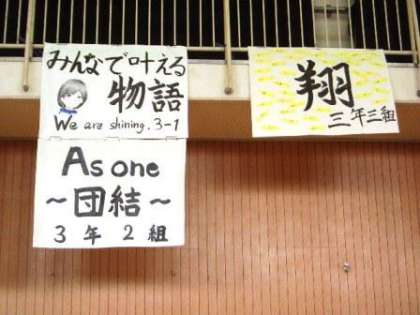 みんなで叶える
物語
We are shining. 3-1
As one
～団結～
3年2組
翔
三年三組